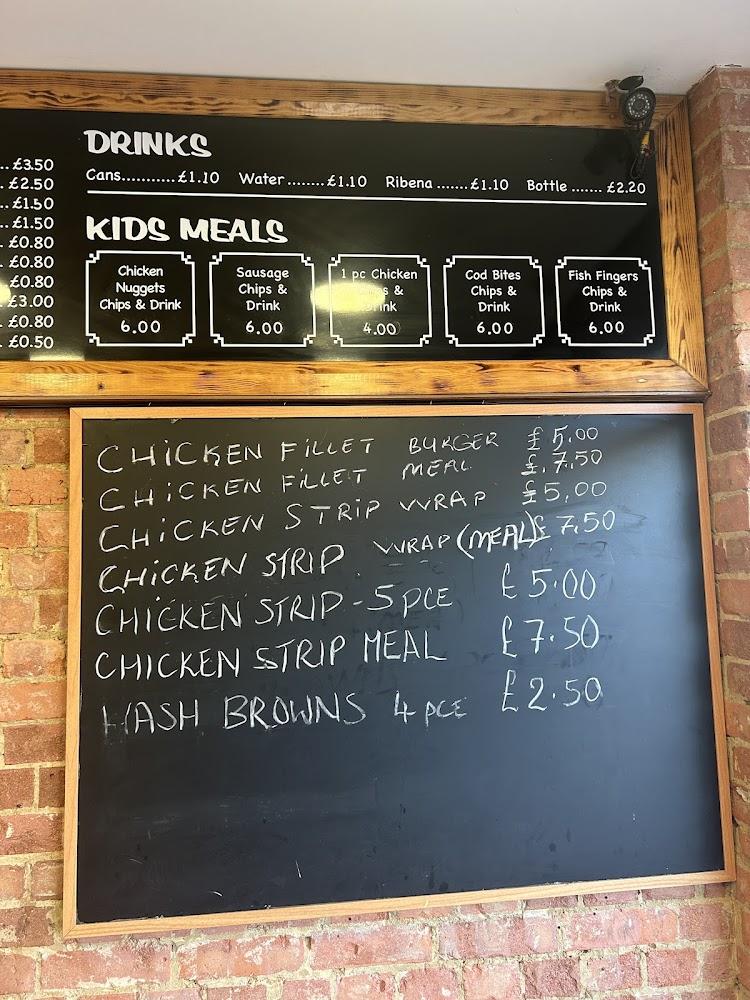 .. £3.50
. £2.50
. £1.50
. £1.50
. £0.80
. £0.80
. £0.80
£3.00
. £0.80
. £0.50
DRINKS
Cans...........£1.10 Water ........£1.10 Ribena .......£1.10 Bottle ....... £2.20
KIDS MEALS
Chicken
Nuggets
Chips & Drink
6.00
Sausage
Chips &
Drink
6.00
1 pc Chicken
&
4.00
Cod Bites
Chips &
Drink
6.00
Fish Fingers
Chips &
Drink
6.00
CHICKEN FILLET BURGER £5.00
CHICKEN FILLET MEAL £.7.50
CHICKEN STRIP WRAP £5.00
CHICKEN STRIP WRAP (MEAL) £7.50
CHICKEN STRIP - 5 PCE £5.00
CHICKEN STRIP MEAL £7.50
HASH BROWNS 4 PCE £2.50